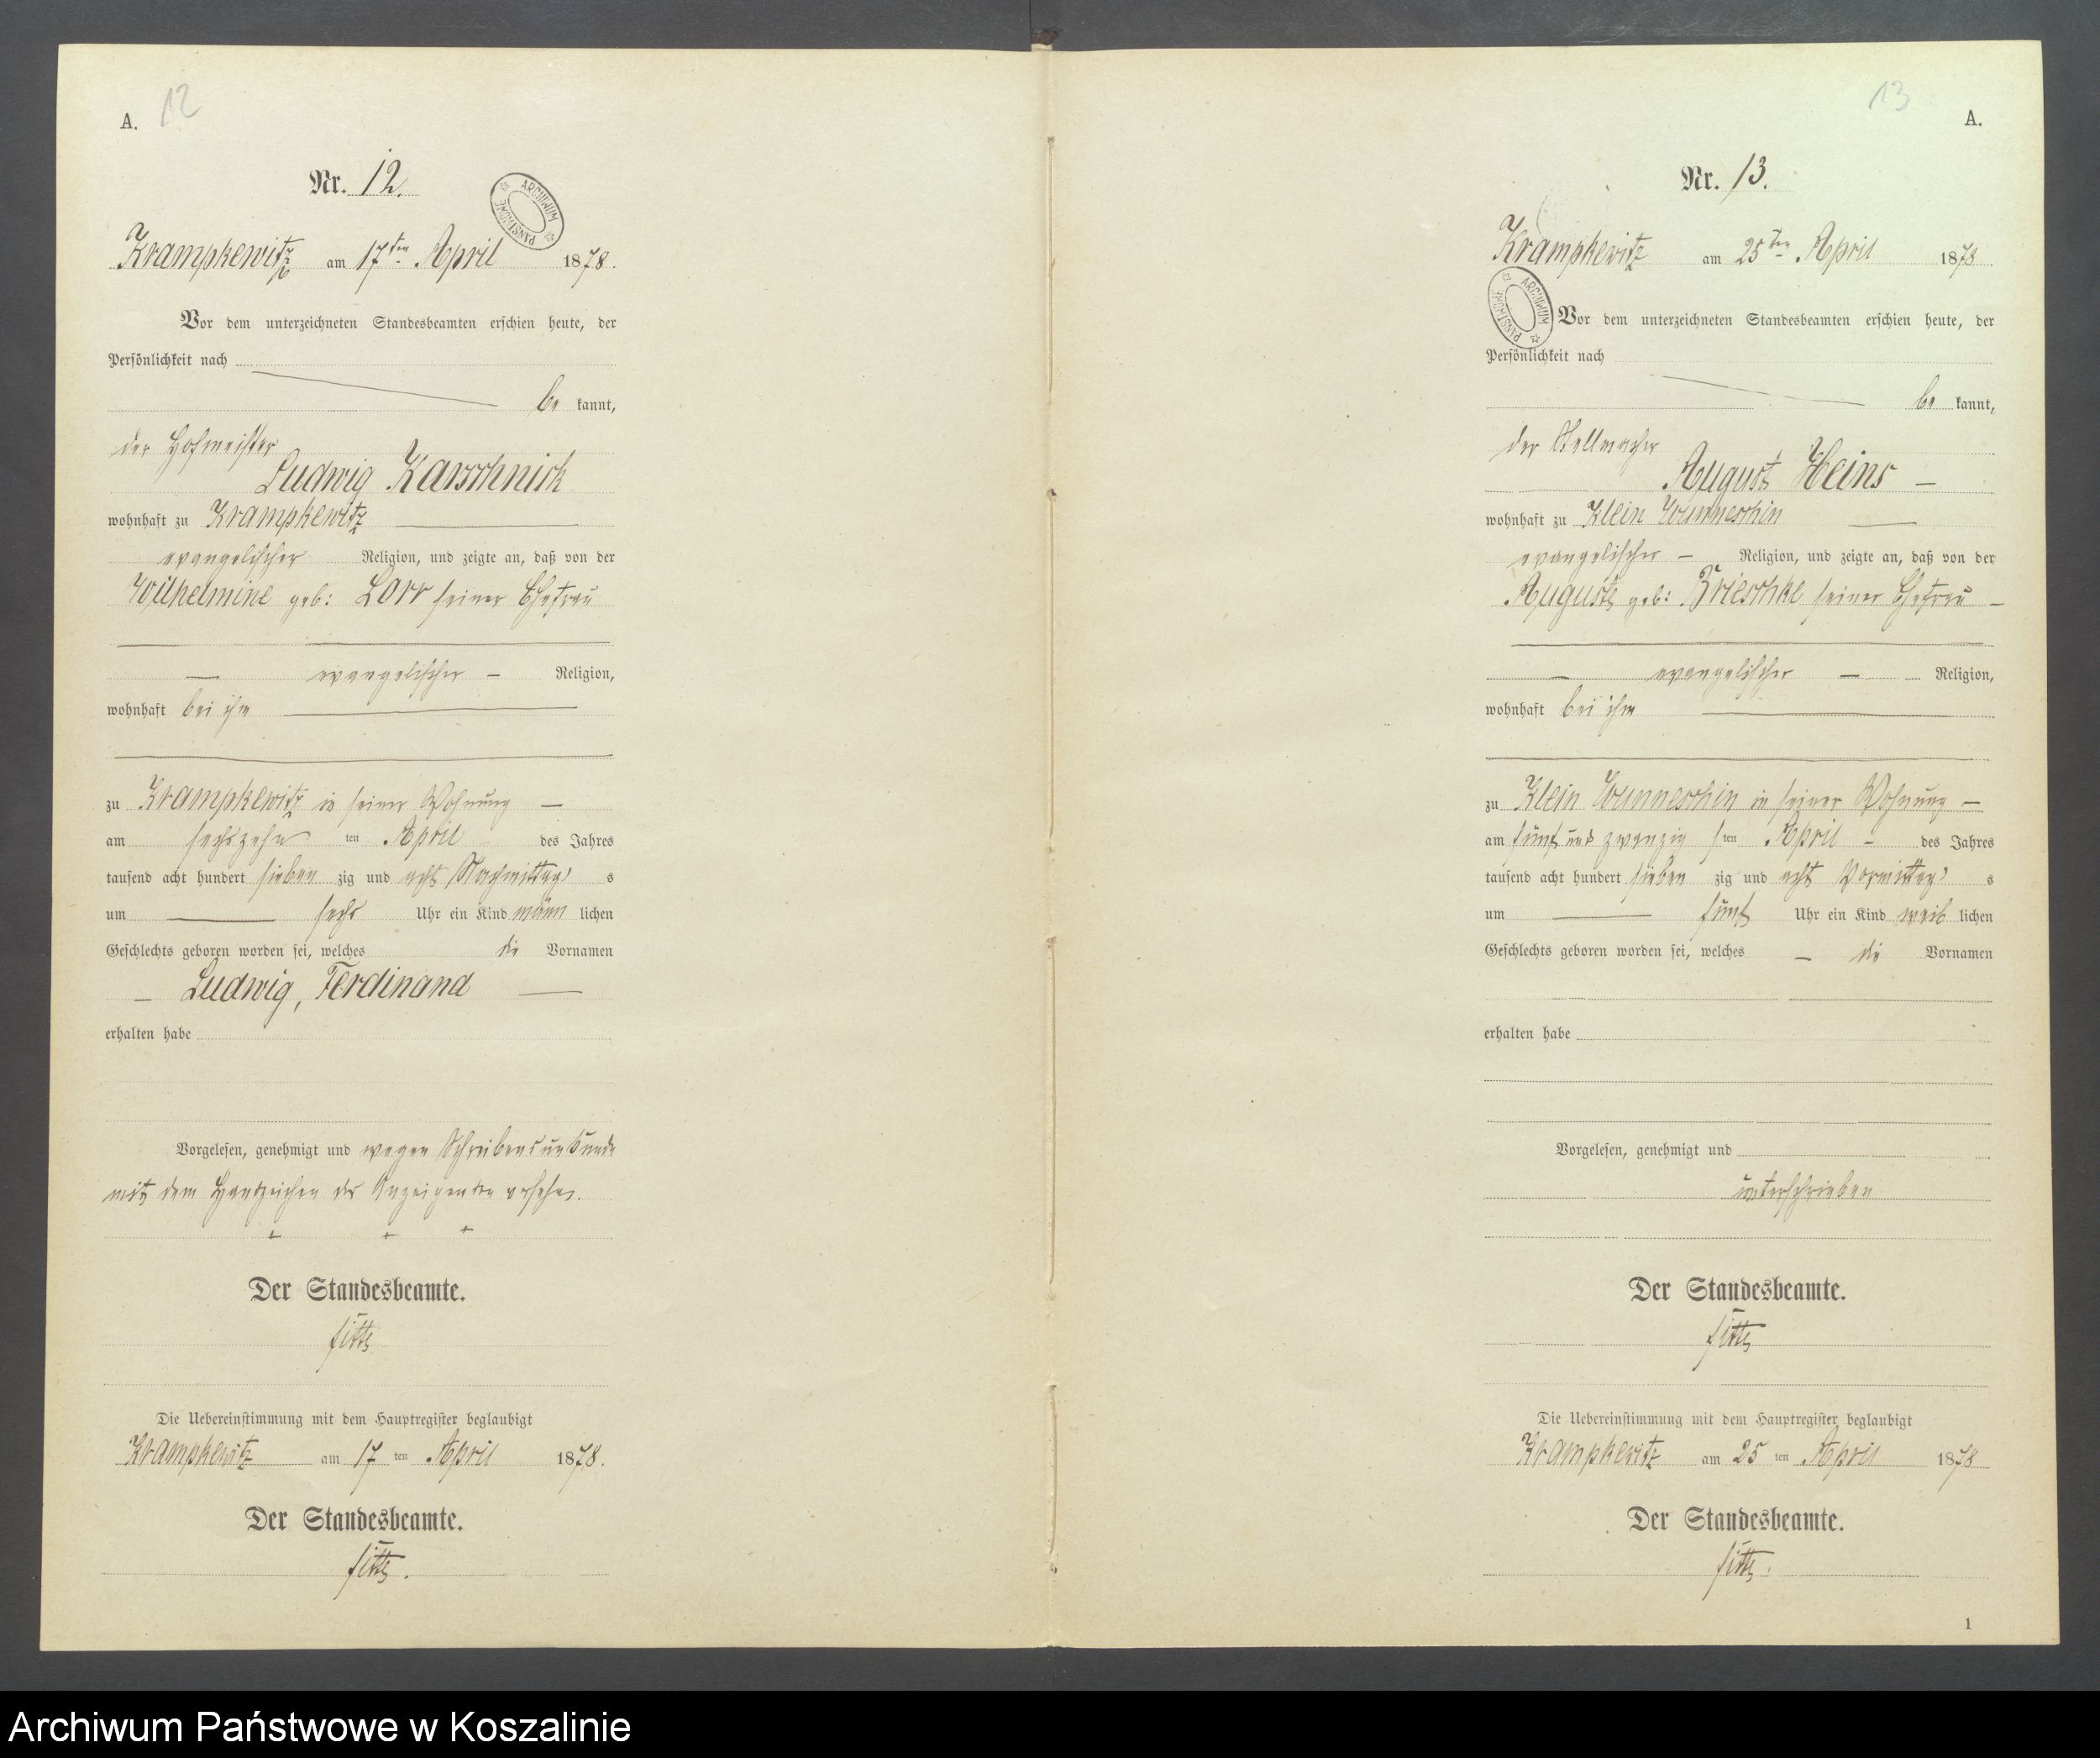 12
A.
Nr. 12.
ARCHIWUM PAŃSTWOWE
Krampkewitz am 17ten April 1878.
Vor dem unterzeichneten Standesbeamten erschien heute, der
Persönlichkeit nach
be kannt,
der Hofmeister
Ludwig Karschnick
wohnhaft zu Krampkewitz
evangelischer Religion, und zeigte an, daß von der
Wilhelmine geb: Lorr seiner Ehefrau
evangelischer Religion,
wohnhaft bei ihm
zu Krampkewitz in seiner Wohnung
am sechszehn ten April des Jahres
tausend acht hundert sieben zig und acht Nachmittag s
um sechs Uhr ein Kind männ lichen
Geschlechts geboren worden sei, welches die Vornamen
Ludwig, Ferdinand
erhalten habe
Vorgelesen, genehmigt und wegen Schreibensunkunde
mit dem Handzeichen des Anzeigenden versehen.
+ + +
Der Standesbeamte.
Die Uebereinstimmung mit dem Hauptregister beglaubigt
Krampkewitz am 17 ten April 1878.
Der Standesbeamte.
13
A.
Nr. 13.
Krampkewitz am 25ten April 1878
ARCHIWUM PAŃSTWOWE
Vor dem unterzeichneten Standesbeamten erschien heute, der
Persönlichkeit nach
be kannt,
der Stellmacher
August Heins
wohnhaft zu Klein Wunneschin
evangelischer Religion, und zeigte an, daß von der
Auguste geb: Brieschke seiner Ehefrau
evangelischer Religion,
wohnhaft bei ihm
zu Klein Wunneschin in seiner Wohnung
am fünf und zwanzig sten April des Jahres
tausend acht hundert sieben zig und acht Vormittag s
um fünf Uhr ein Kind weib lichen
Geschlechts geboren worden sei, welches die Vornamen
erhalten habe
Vorgelesen, genehmigt und
unterschrieben
Der Standesbeamte.
Die Uebereinstimmung mit dem Hauptregister beglaubigt
Krampkewitz am 25 ten April 1878
Der Standesbeamte.
1
Archiwum Państwowe w Koszalinie